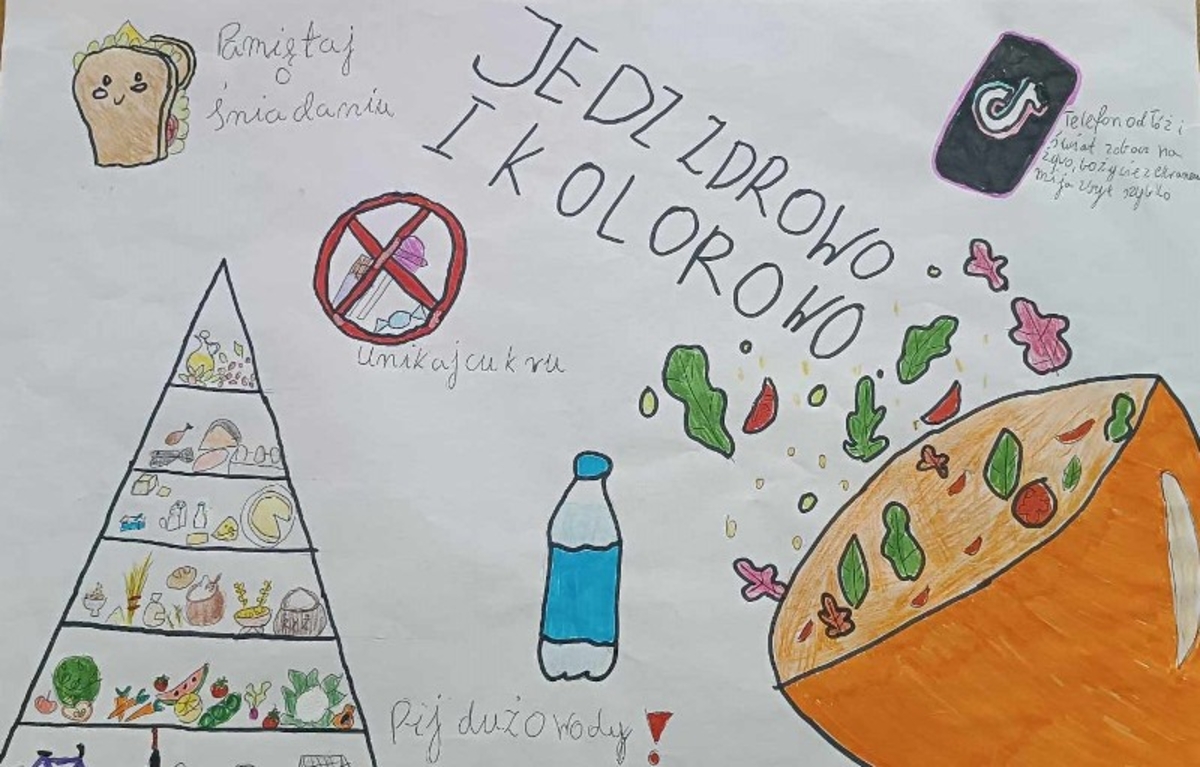 Pamiętaj
o
śniadaniu
JEDZ ZDROWO
I KOLOROWO
Telefon odłóż i
świat zobacz na
żywo, bo życie z ekranem
mija zbyt szybko
Unikaj cukru
Pij dużo wody!